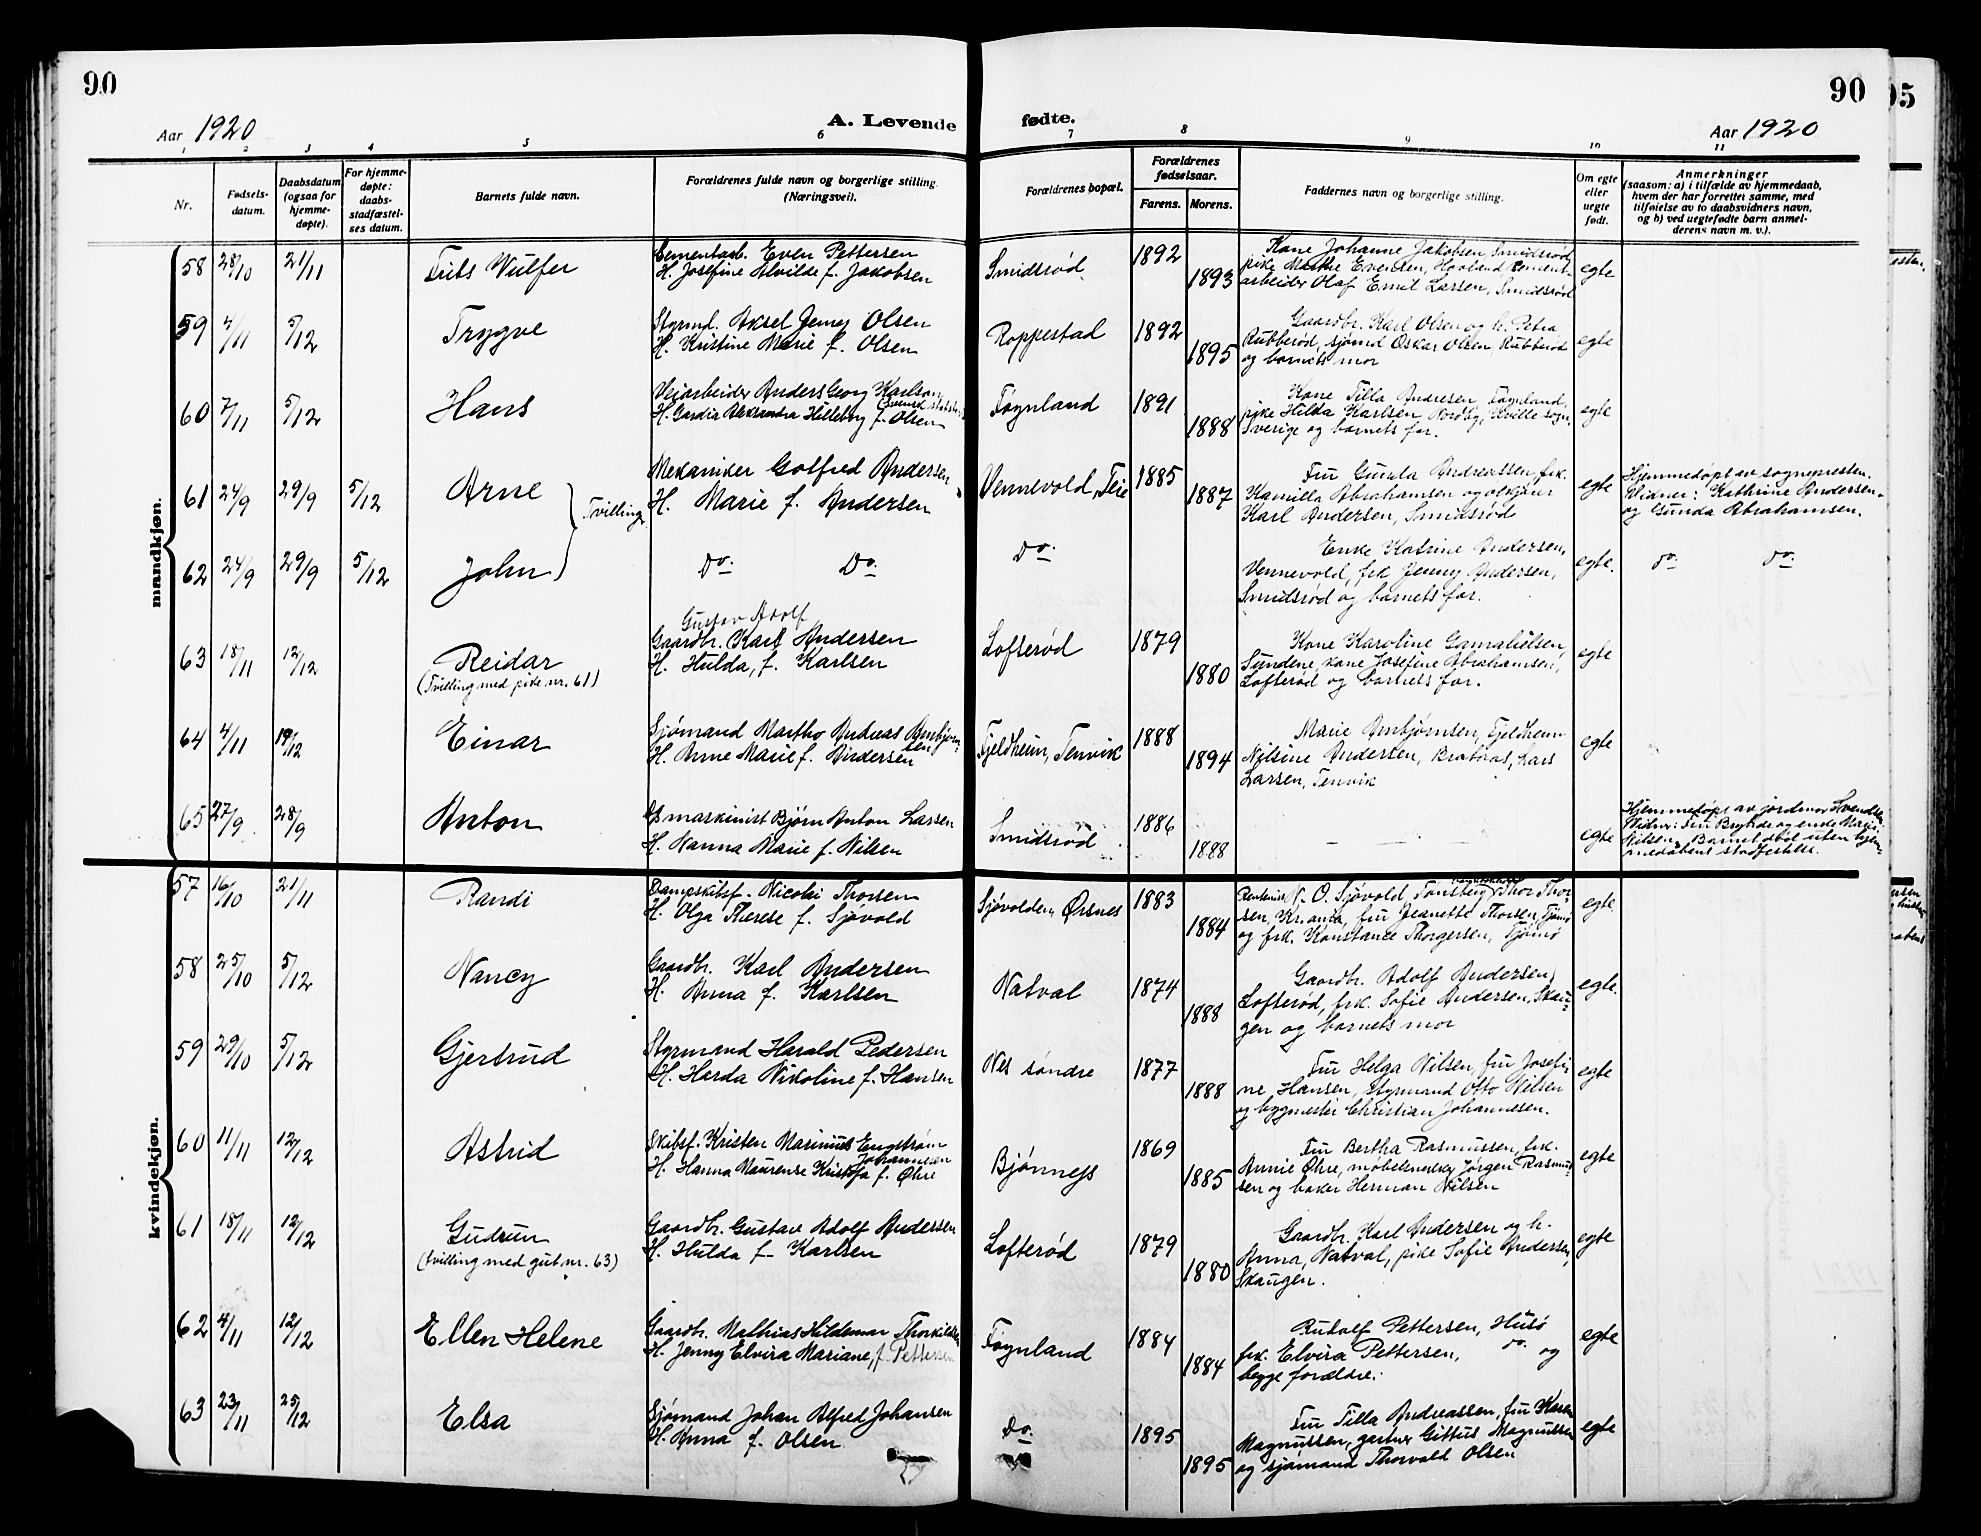 90
90
95
Aar 1920
A. Levende fødte.
Aar 1920
1 2 3 4 5 6 7 8 9 10 11
Nr.
Fødsels-
datum.
Daabsdatum
(ogsaa for
hjemme-
døpte).
For hjemme-
døpte:
daabs-
stadfæstel-
ses datum.
Barnets fulde navn.
Forældrenes fulde navn og borgerlige stilling.
(Næringsvei).
Forældrenes bopæl.
Forældrenes
fødselsaar.
Farens. Morens.
Faddernes navn og borgerlige stilling.
Om egte
eller
uegte
født.
Anmerkninger
(saasom: a) i tilfælde av hjemmedaab,
hvem der har forrettet samme, med
tilføielse av to daabsvidners navn,
og b) ved uegtefødte barn anmel-
derens navn m. v.).
mandkjøn.
58 28/10 21/11 Frits Wulfer
Cementarb. Even Pettersen
H. Josefine Alvilde f. Jakobsen
Smidsrød 1892 1893
Kone Johanne Jakobsen, Smidsrød,
pike Marthe Evensen, Hooland, cement-
arbeider Olaf Emil Larsen, Smidsrød
egte
59 4/11 5/12 Trygve
Styrmd. Aksel Jeney Olsen
H. Kristine Marie f. Olsen
Roppestad 1892 1895
Gaardbr. Karl Olsen og h. Petra
Rubberød, sjømd Oskar Olsen, Rubberød
og barnets mor
egte
60 7/11 5/12 Hans
Veiarbeider Anders Georg Karlson
(svensk statsb.)
H. Gerdia Alexandra Hilleborg f. Olsen
Føynland 1891 1888
Kone Tilla Andresen, Føynland,
pike Hilda Karlsen, Nordby, Kville sogn,
Sverige og barnets far.
egte
61 24/9 29/9 5/12 Arne
Tvillinger
Mekaniker Gotfred Andersen
H. Marie f. Andersen
Vennevold, Teie 1885 1887
Fru Gunda Andreassen, frk.
Kamilla Abrahamsen og
Karl Andersen, Smidsrød
egte
Hjemmedøpt av sognepresten.
Vidner: Kathrine Andersen
og Gunda Abrahamsen.
62 24/9 29/9 5/12 John
Do. Do. Do.
Enke Katrine Andersen,
Vennevold, frk Jenny Andersen,
Smidsrød og barnets far.
egte. do do
63 18/11 12/12 Reidar
(Tvilling med pike nr. 61)
Gustav Adolf
Gaardbr. Karl Andersen
H. Hulda, f. Karlsen
Lofterød 1879 1880
Kone Karoline Gamalielsen,
Sundene, kone Josefine Abrahamsen,
Lofterød og barnets far.
egte
64 4/11 19/12 Einar
Sjømand Martho Andreas Arnbjørn-
sen
H. Anne Marie f. Andersen
Fjeldheim, Tenvik 1888 1894
Marie Arnbjørnsen, Fjeldheim
Nilsine Andersen, Brataas, Lars
Larsen, Tenvik
egte
65 27/9 28/9 Anton
maskinist Bjørn Anton Larsen
H. Nanna Marie f. Nilsen
Smidsrød 1886 1888
– – –
egte
Hjemmedøpt av jordmor Svendsen
Vidner: Fru Brynhda og enke Marie
Nilsen. Barnet død uten hjem-
medaabens stadfestelse.
kvindekjøn.
57 16/10 21/11 Randi
Dampskibsf. Nicolai Thorsen
H. Olga Therese f. Sjøvold
Sjøvolden, Ørsnes 1883 1884
N. O. Sjøvold, Tønsberg, Thor Thor-
sen, Kr.ania, fru Jeanette Thorsen, Tjømø
og frk. Konstance Thorgersen, Tjømø
egte
58 25/10 5/12 Nancy
Gaardbr. Karl Andersen
H. Anna f. Karlsen
Natval 1874 1888
Gaardbr. Adolf Andersen,
Lofterød, frk. Sofie Andersen, Skau-
gen og barnets mor
egte.
59 29/10 5/12 Gjertrud
Styrmand Harald Pedersen
H. Harda Nikoline f. Hansen
Nes søndre 1877 1888
Fru Helga Nilsen, fru Josefi-
ne Hansen, styrmand Otto Nilsen
og bygmester Christian Johannesen.
egte
60 11/11 12/12 Astrid
Skibsf. Kristen Marinius Engstrøm
Johannesen
H. Hanna Maurense Kristofa f. Øhre
Bjønnes 1869 1885
Fru Bertha Rasmussen, frk.
Annie Øhre, møbelsnekker Jørgen Rasmus-
sen og baker Herman Nilsen
egte
61 18/11 12/12 Gudrun
(tvilling med gut nr. 63)
Gaardbr. Gustav Adolf Andersen
H. Hulda f. Karlsen
Lofterød 1879 1880
Gaardbr. Karl Andersen og h.
Anna, Natval, pike Sofie Andersen,
Skaugen.
egte
62 4/11 12/12 Ellen Helene
Gaardbr. Mathias Hildemar Thorkildsen
H. Jenny Elvira Mariane, f. Pettersen
Føynland 1884 1884
Rudolf Pettersen, Husø
frk. Elvira Pettersen, do. og
begge forældre.
egte
63 23/11 25/12 Elsa
Sjømand Johan Alfred Johansen
H. Anna f. Olsen
Do. 1895 1895
Fru Tilla Andreassen, fru Karen
Magnussen, gartner Gittus Magnussen
og sjømand Thorvald Olsen
egte